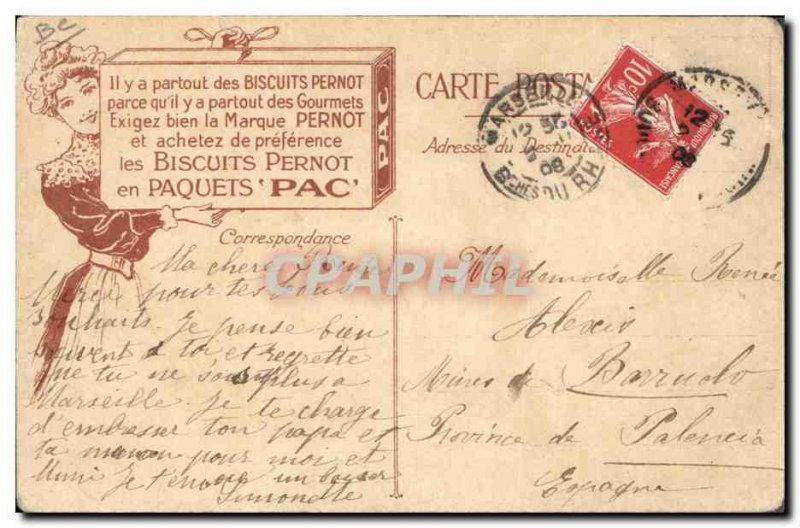 BC
Il y a partout des BISCUITS PERNOT
parce qu'il y a partout des Gourmets
Exigez bien la Marque PERNOT
et achetez de préférence
les BISCUITS PERNOT
en PAQUETS 'PAC'
PAC
CARTE POSTA
Adresse du Destinatai
10c
POSTES
REPUBLIQUE FRANÇAISE
MARSEILLE
Bches DU RH
08
MARSE
12
08
Correspondance
Ma chère Renée
Merci pour tes bons
souhaits. Je pense bien
souvent à toi et regrette
que tu ne sois plus a
Marseille. Je te charge
d'embrasser ton papa et
ta maman pour moi et
Mimi Je t'envoie un baiser
Simonette
CPAPHIL
Mademoiselle Renée
Alexis
Mines de Barruelo
Province de Palencia
Espagne